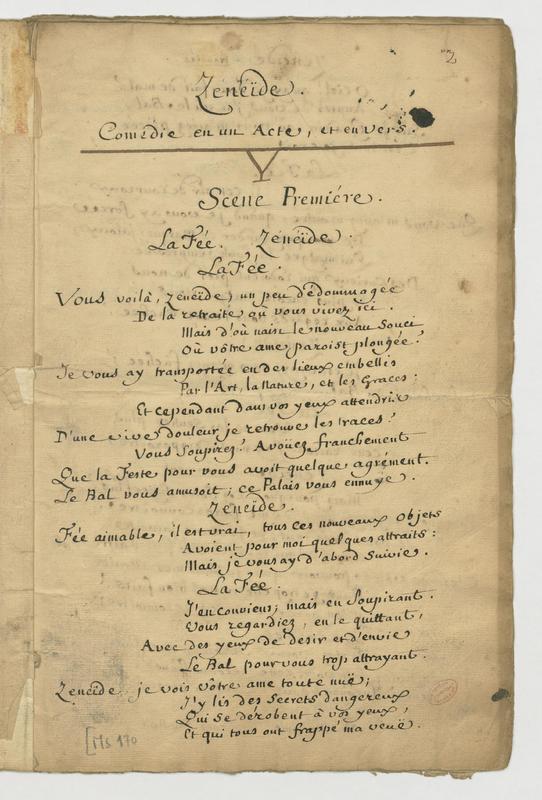 2
Zeneïde.
Comédie en un Acte, et en vers.
Scene Premiére.
La Fée. Zeneïde.
La Fée.
Vous voilà, Zeneïde, un peu dédommagée
De la retraite où vous vivez ici.
Mais d'où naist le nouveau souci
Où vôtre ame paroist plongée?
Je vous ay transportée en des lieux embellis
Par l'Art, la Nature, et les Graces:
Et cependant dans vos yeux attendris
D'une vive douleur je retrouve les traces?
Vous soupirez? Avoüez franchement
Que la Feste pour vous avoit quelque agrément.
Le Bal vous amusoit; ce Palais vous ennuye.
Zeneïde.
Fée aimable, il est vrai, tous ces nouveaux objets
Avoient pour moi quelques attraits:
Mais je vous ay d'abord suivie.
La Fée.
J'en conviens; mais en soupirant.
Vous regardiez, en le quittant,
Avec des yeux de desir et d'envie
Le Bal pour vous trop attrayant.
Zeneïde.. je vois vôtre ame toute nuë;
J'y lis des secrets dangereux
Qui se dérobent à vos yeux,
Et qui tous ont frappé ma veuë.
[Ms 170